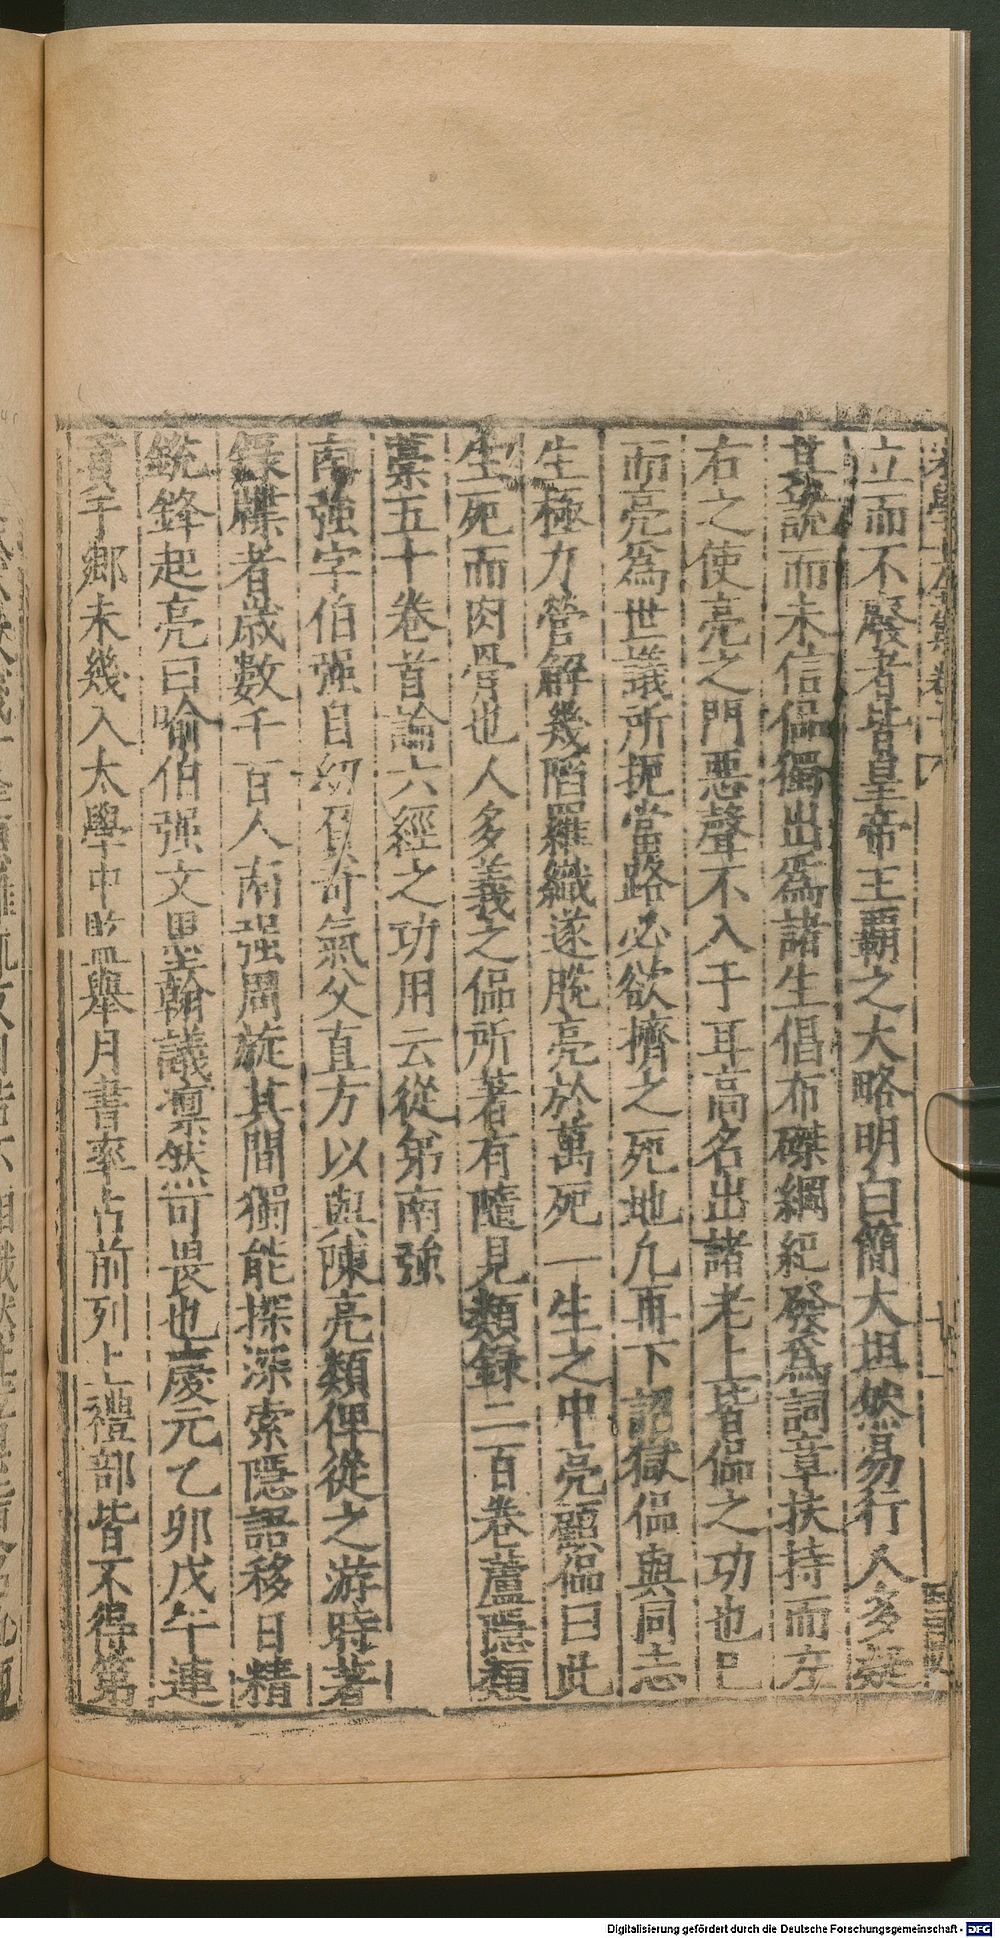 立而不廢者皆皇帝王覇之大略明白簡大坦然易行人多疑
其說而未信偘獨出爲諸生倡布磔綱紀發爲詞章扶持而左
右之使亮之門惡聲不入于耳高名出諸老上皆偘之功也已
而亮爲世議所扼當路必欲擠之死地凢再下詔獄偘與同志
生極力營解幾陷羅織遂脫亮於萬死一生之中亮顧偘曰此
生死而肉骨也人多義之偘所著有隨見類録二百卷蘆隱類
藁五十卷首論六經之功用云從第南強
南強字伯强自幼負奇氣父直方以與陳亮類俾從之游時著
錄牒者歲數千百人南强周旋其間獨能探深索隱語移日精
銳鋒起亮曰喻伯强文墨翰議凛然可畏也慶元乙卯戊午連
貢于郷未幾入太學中監舉月書率占前列上禮部皆不得第
Digitalisierung gefördert durch die Deutsche Forschungsgemeinschaft - DFG